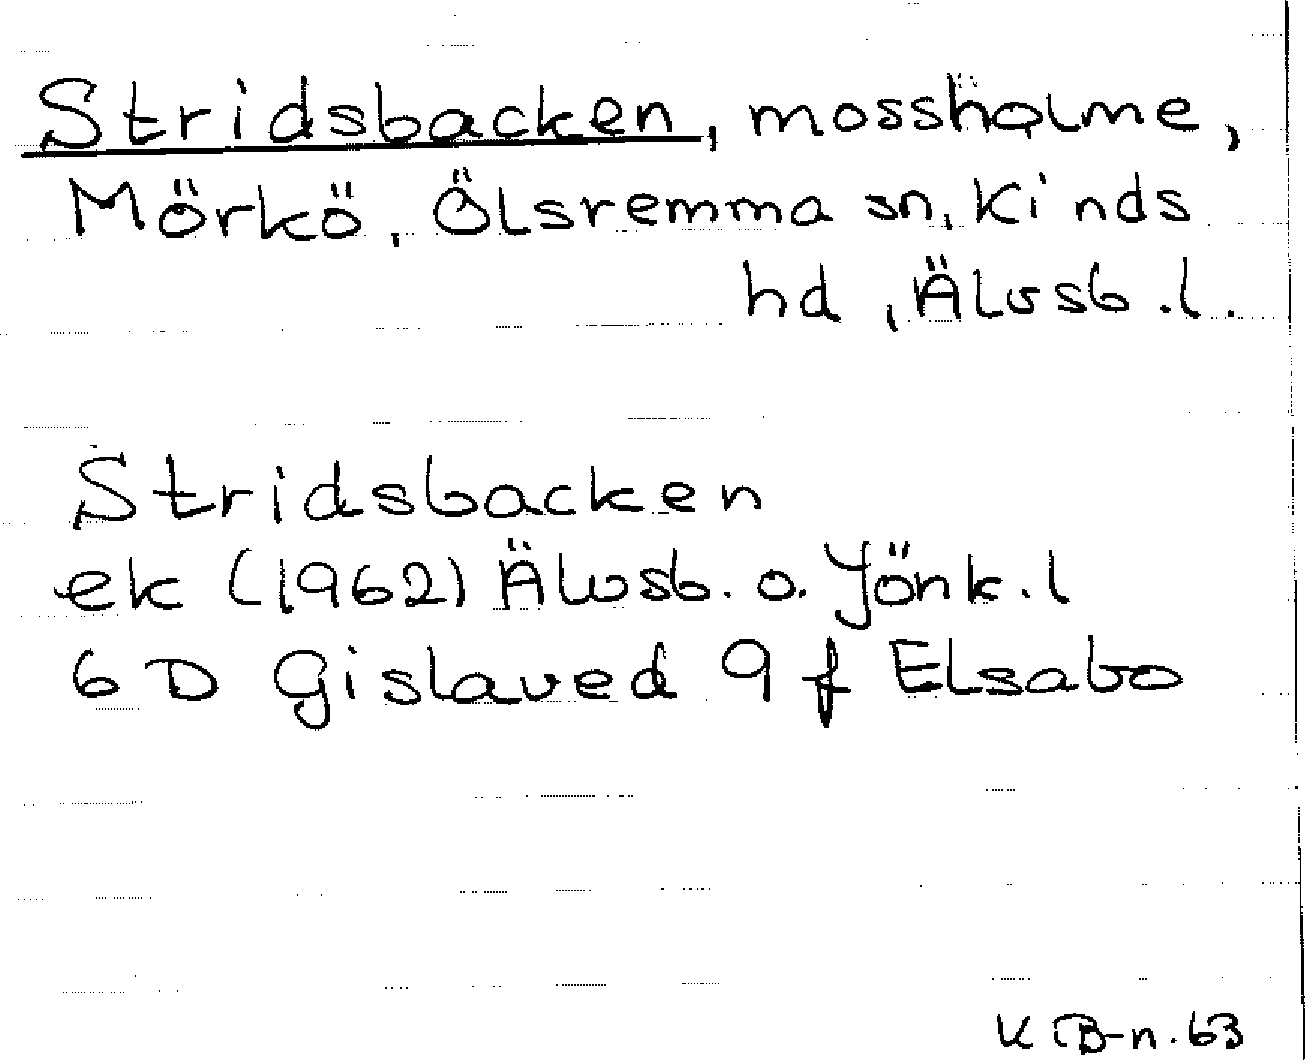 Stridsbacken, mossholme,
Mörkö, Ölsremma sn, Kinds
hd, Älvsb. l.
Stridsbacken
ek (1962) Älvsb. o. Jönk. l
6 D Gislaved 9 f Elsabo
K B-n. 63